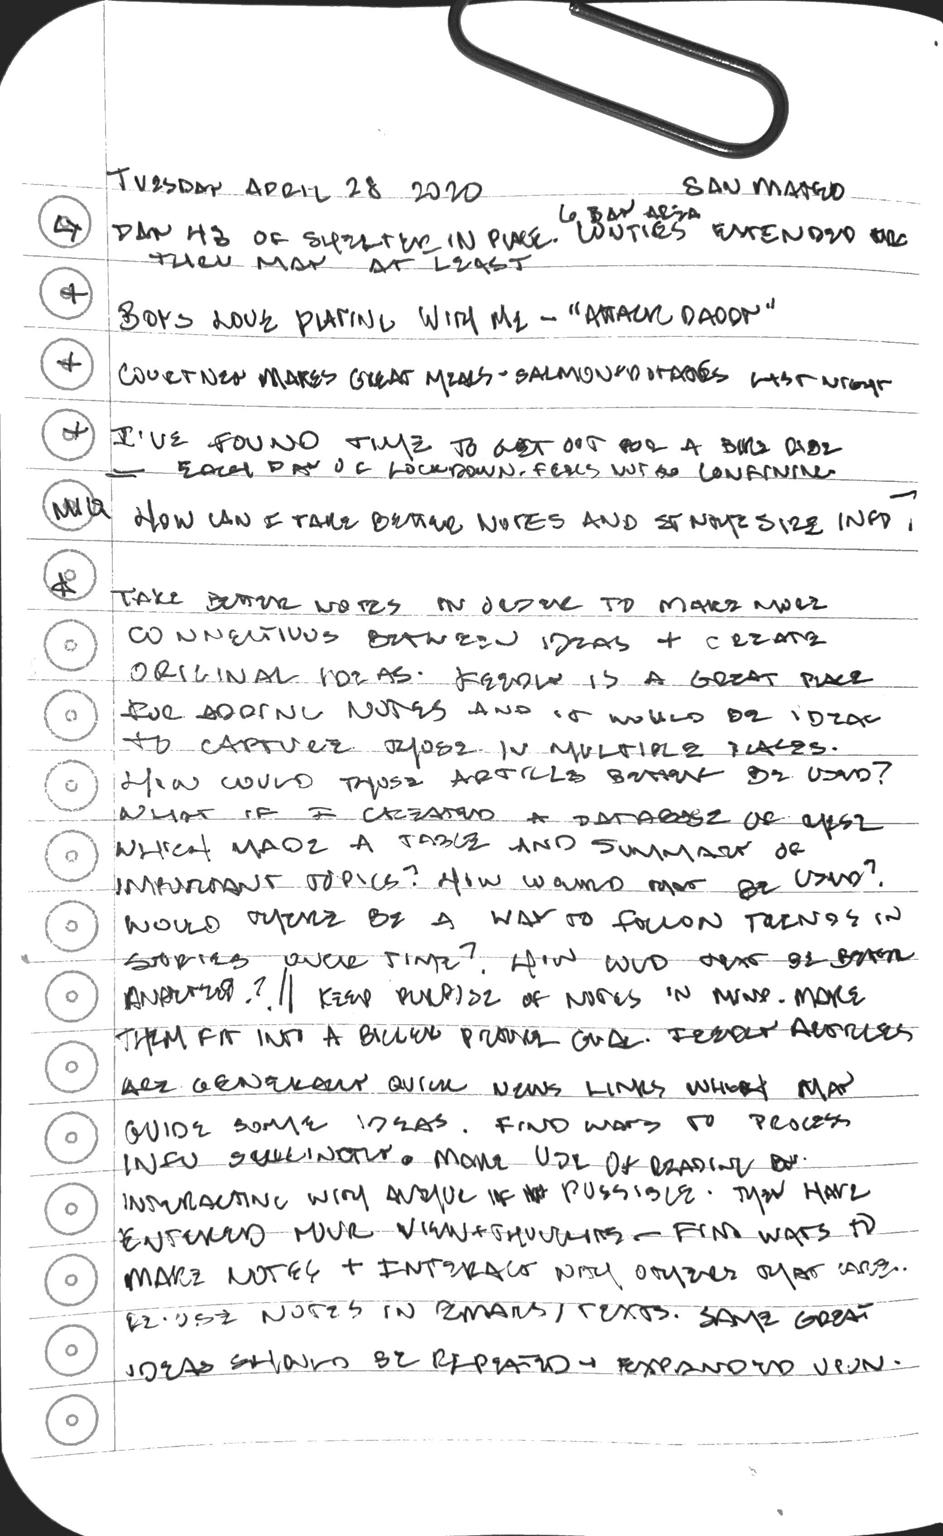 TUESDAY APRIL 28 2020 SAN MATEO
6 BAY AREA
DAY 43 OF SHELTER IN PLACE. COUNTIES EXTENDED
THRU MAY AT LEAST
BOYS LOVE PLAYING WITH ME - "ATTACK DADDY"
COURTNEY MAKES GREAT MEALS - SALMON + POTATOES LAST NIGHT
I'VE FOUND TIME TO GET OUT FOR A BIKE RIDE
- EACH DAY OF LOCKDOWN. FEELS LESS CONFINING
HOW CAN I TAKE BETTER NOTES AND SYNTHESIZE INFO?
TAKE BETTER NOTES IN ORDER TO MAKE MORE
CONNECTIONS BETWEEN IDEAS + CREATE
ORIGINAL IDEAS. FEEDLY IS A GREAT PLACE
FOR ADDING NOTES AND IT WOULD BE IDEAL
TO CAPTURE THOSE IN MULTIPLE PLACES.
HOW COULD THOSE ARTICLES BETTER BE USED?
WHAT IF I CREATED A DATABASE OF THESE
WHICH MADE A TABLE AND SUMMARY OF
IMPORTANT TOPICS? HOW WOULD THAT BE USED?
WOULD THERE BE A WAY TO FOLLOW TRENDS IN
STORIES OVER TIME? HOW WOULD THAT BE BETTER
ANALYZED? // KEEP PURPOSE OF NOTES IN MIND. MAKE
THEM FIT INTO A BIGGER GOAL. FEEDLY ARTICLES
ARE GENERALLY QUICK NEWS LINKS WHICH MAY
GUIDE SOME IDEAS. FIND WAYS TO PROCESS
INFO. MAKE USE OF READING BY
INTERACTING WITH AUTHOR IF POSSIBLE. THEY HAVE
ENTERED YOUR VIEW + THOUGHTS - FIND WAYS TO
MAKE NOTES + INTERACT WITH OTHERS THAT CARE.
RE-USE NOTES IN EMAILS/TEXTS. SAME GREAT
IDEAS SHOULD BE REPEATED + EXPANDED UPON.